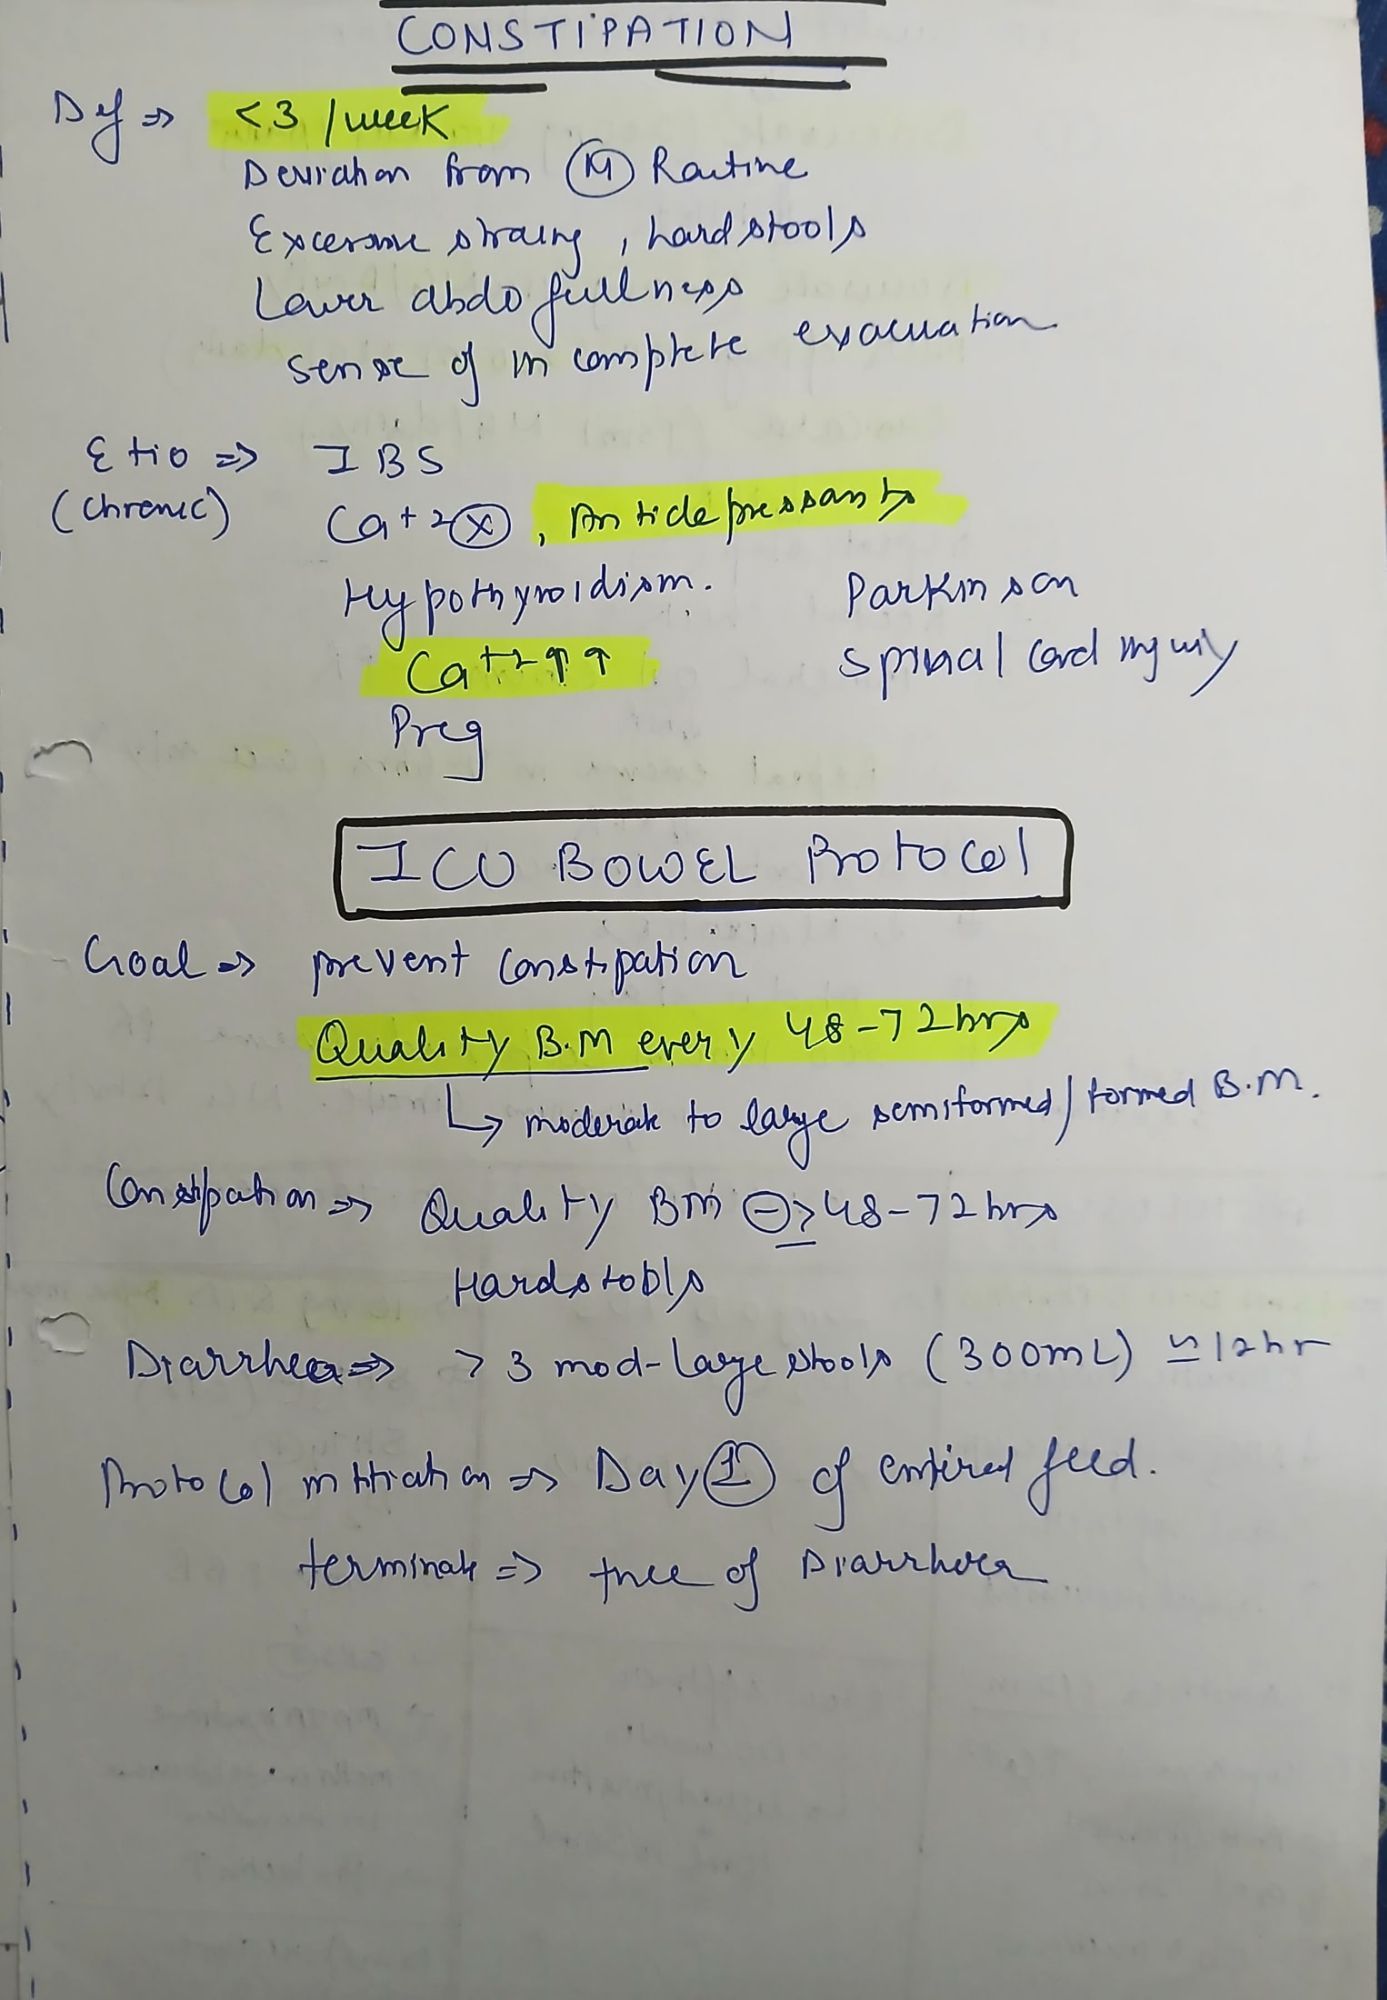 CONSTIPATION
Def ⇒ <3 /week
Deviation from Ⓝ Routine
Excessive straing, hard stools
Lower abdo fullness
sense of in complete evacuation
Etio ⇒ IBS
(Chronic) Ca+2 ⓧ, Antidepressants
Hypothyroidism. Parkinson
Ca++2 ↑↑ Spinal Cord injury
Preg
ICU BOWEL Protocol
Goal ⇒ prevent constipation
Quality B.M every 48-72hrs
↳ moderate to large semiformed/formed B.M.
Constipation ⇒ Quality BM ⊖ ≥ 48-72 hrs
Hard stools
Diarrhea ⇒ > 3 mod-large stools (300mL) ≃ 12hr
Protocol initiation ⇒ Day ① of enteral feed.
terminate ⇒ free of Diarrhoea